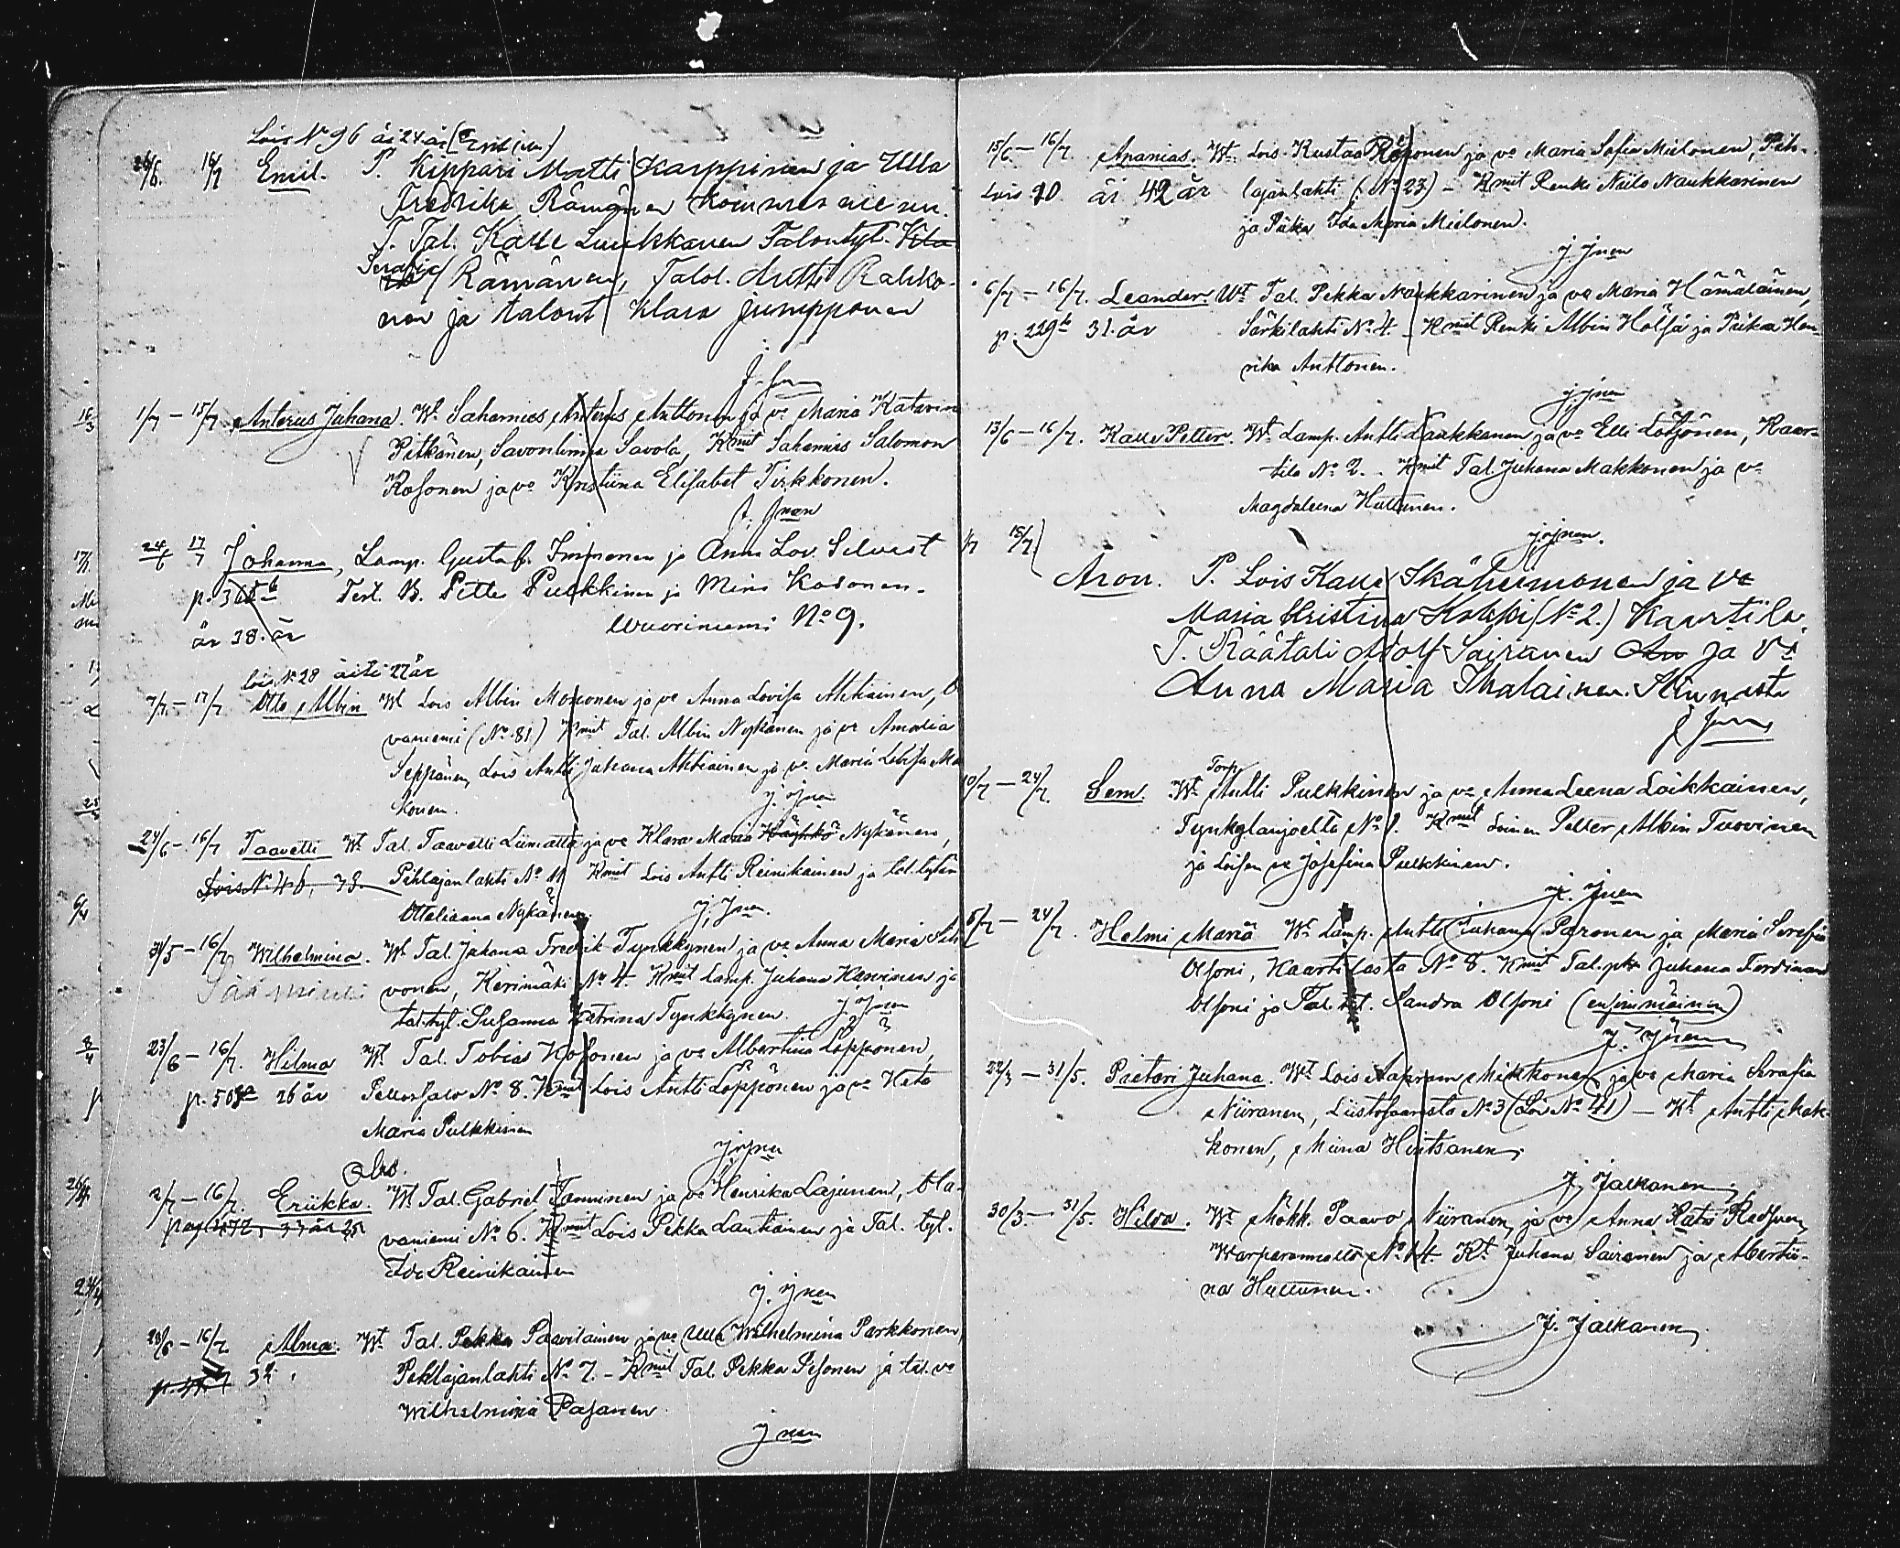 Lois No 96 äi 24 är (Ens. jun)
26/6. 16/7 Emil. P. Kippari Matti Karppinen ja Ulla
Fredrika Rämänen Kommerniemi.
T. Tal. Kalle Luukkanen Talontyt.
Serafia Rämänen, Talol. Antti Rahko-
nen ja talont Klara Jumpponen
1/7 – 15/7 Anterus Juhana. Wt. Sahamies Anterus Anttonen ja vo Maria Katarin
Pitkänen, Savonlinna Savola, Kmit Sahamies Salomon
Kosonen ja vo Kristiina Elisabet Tirkkonen.
J. Jnen
24/6 17/7 Johanna, Lamp. Gustaf Immonen ja Anna Lov. Silvast
p. 368 b Test. B. Petter Pulkkinen ja Mina Kosonen.
är 38. är Wuoriniemi No 9.
lois No 28 äiti 22 år
7/7 – 17/7 Otto Albin Wt Lois Albin Mononen ja vo Anna Lovisa Ahtiainen, O
vaniemi (No 81) Kmit Tal. Albin Nykänen ja vo Amalia
Seppänen, Lois Antti Juhana Ahtiainen ja vo Maria Lovisa Ma
konen. J. Jnen
24/6 – 16/7 Taavetti Wt Tal. Taavetti Liimatta ja vo Klara Maria Häyhkö Nykänen,
Lois No 46, 39. Pihlajanlahti No 11 Kmit Lois Antti Reinikainen ja tal. tytär
Ottaliaana Nykänen. J. Jnen.
31/5 – 16/7 Wilhelmina. Wt Tal. Juhana Fredrik Tynkkynen ja vo Anna Maria Sih
Sääminki vonen, Kerimäki No 4. Kmit Lamp. Juhana Karvinen ja
tal. tyt. Susanna Katrina Tynkkynen. J. Jnen
23/6 – 16/7. Hilma Wt. Tal. Tobias Kosonen ja vo Albertina Löppönen,
p. 508 26 år Pellossalo No 8. Kmit Lois Antti Löppönen ja vo Keta
Maria Pulkkinen
J. Jnen
2/7 – 16/7. Eriikka. Wt. Tal. Gabriel Tamminen ja vo Henrika Lajunen, Ola-
pag 472, 33 år vaniemi No 6. Kmit Lois Pekka Lautiainen ja Tal. tyt.
Ida Reinikainen
J. Jnen
28/6 – 16/7 Alma. Wt. Tal. Pekka Paavilainen ja vo Ulla Wilhelmina Parkkonen
32. Pihlajanlahti No 7. – Kmit Tal. Pekka Pesonen ja tal. vo
Wilhelmina Pasanen
Jnen
15/6 – 16/7. Ananias. Wt. Lois Kustaa Röponen ja vo Maria Sofia Mielonen, Pih-
Lois 10 äi 42 år lajanlahti (No 23) – Kmit Renki Niilo Naukkarinen
ja Piika Ida Maria Mielonen.
J. Jnen
6/7 – 16/7. Leander. Wt Tal. Pekka Naukkarinen ja vo Maria Hämäläinen,
p. 229 b 31 år Särkilahti No 4. Kmit Renki Albin Hölsä ja Piika Hen-
rika Anttonen.
J. Jnen
13/6 – 16/7. Kalle Petter. Wt. Lamp. Antti Laukkanen ja vo Elli Lötjönen, Kaar-
tila No 2. Kmit Tal. Juhana Makkonen ja vo
Magdaleena Huttunen.
J. Jnen.
15/7 Aron. P. Lois Kalle Ikäheimonen ja vo
Maria Kristina Kokki (No 2.) Kaartila
T. Räätali Adolf Sairanen ja Vo
Anna Maria Ihalainen.
J. Jnen
10/7 – 24/7. Sem. Wt. Torp. Antti Pulkkinen ja vo Anna Leena Loikkainen,
Tynkylänjoelta, No 1. Kmit Loinen Petter Albin Tuovinen
ja Loisen vo Josefina Pulkkinen.
J. Jnen
5/7 – 24/7. Helmi Maria Wt Lamp. Antti Juhana Paronen ja Maria Serafia
Olsoni, Kaartilasta No 8. Kmit Tal. pka Juhana Ferdinand
Olsoni ja Tal. tyt. Sandra Olsoni (ensimmäinen)
J. Jnen
22/3 – 31/5. Pietari Juhana. Wt. Lois Aapram Mikkonen ja vo Maria Serafia
Niiranen, Liistosaaresta No 3 (Lois No 41) – Kt Antti Mak-
konen, Miina Hintsanen.
J. Jalkanen
30/3. – 31/5. Hilda. Wt Mökk. Paavo Niiranen, ja vo Anna Kats Redsven,
Warparannalta No 14. Kt Juhana Sairanen ja Alberti-
na Huttunen.
J. Jalkanen